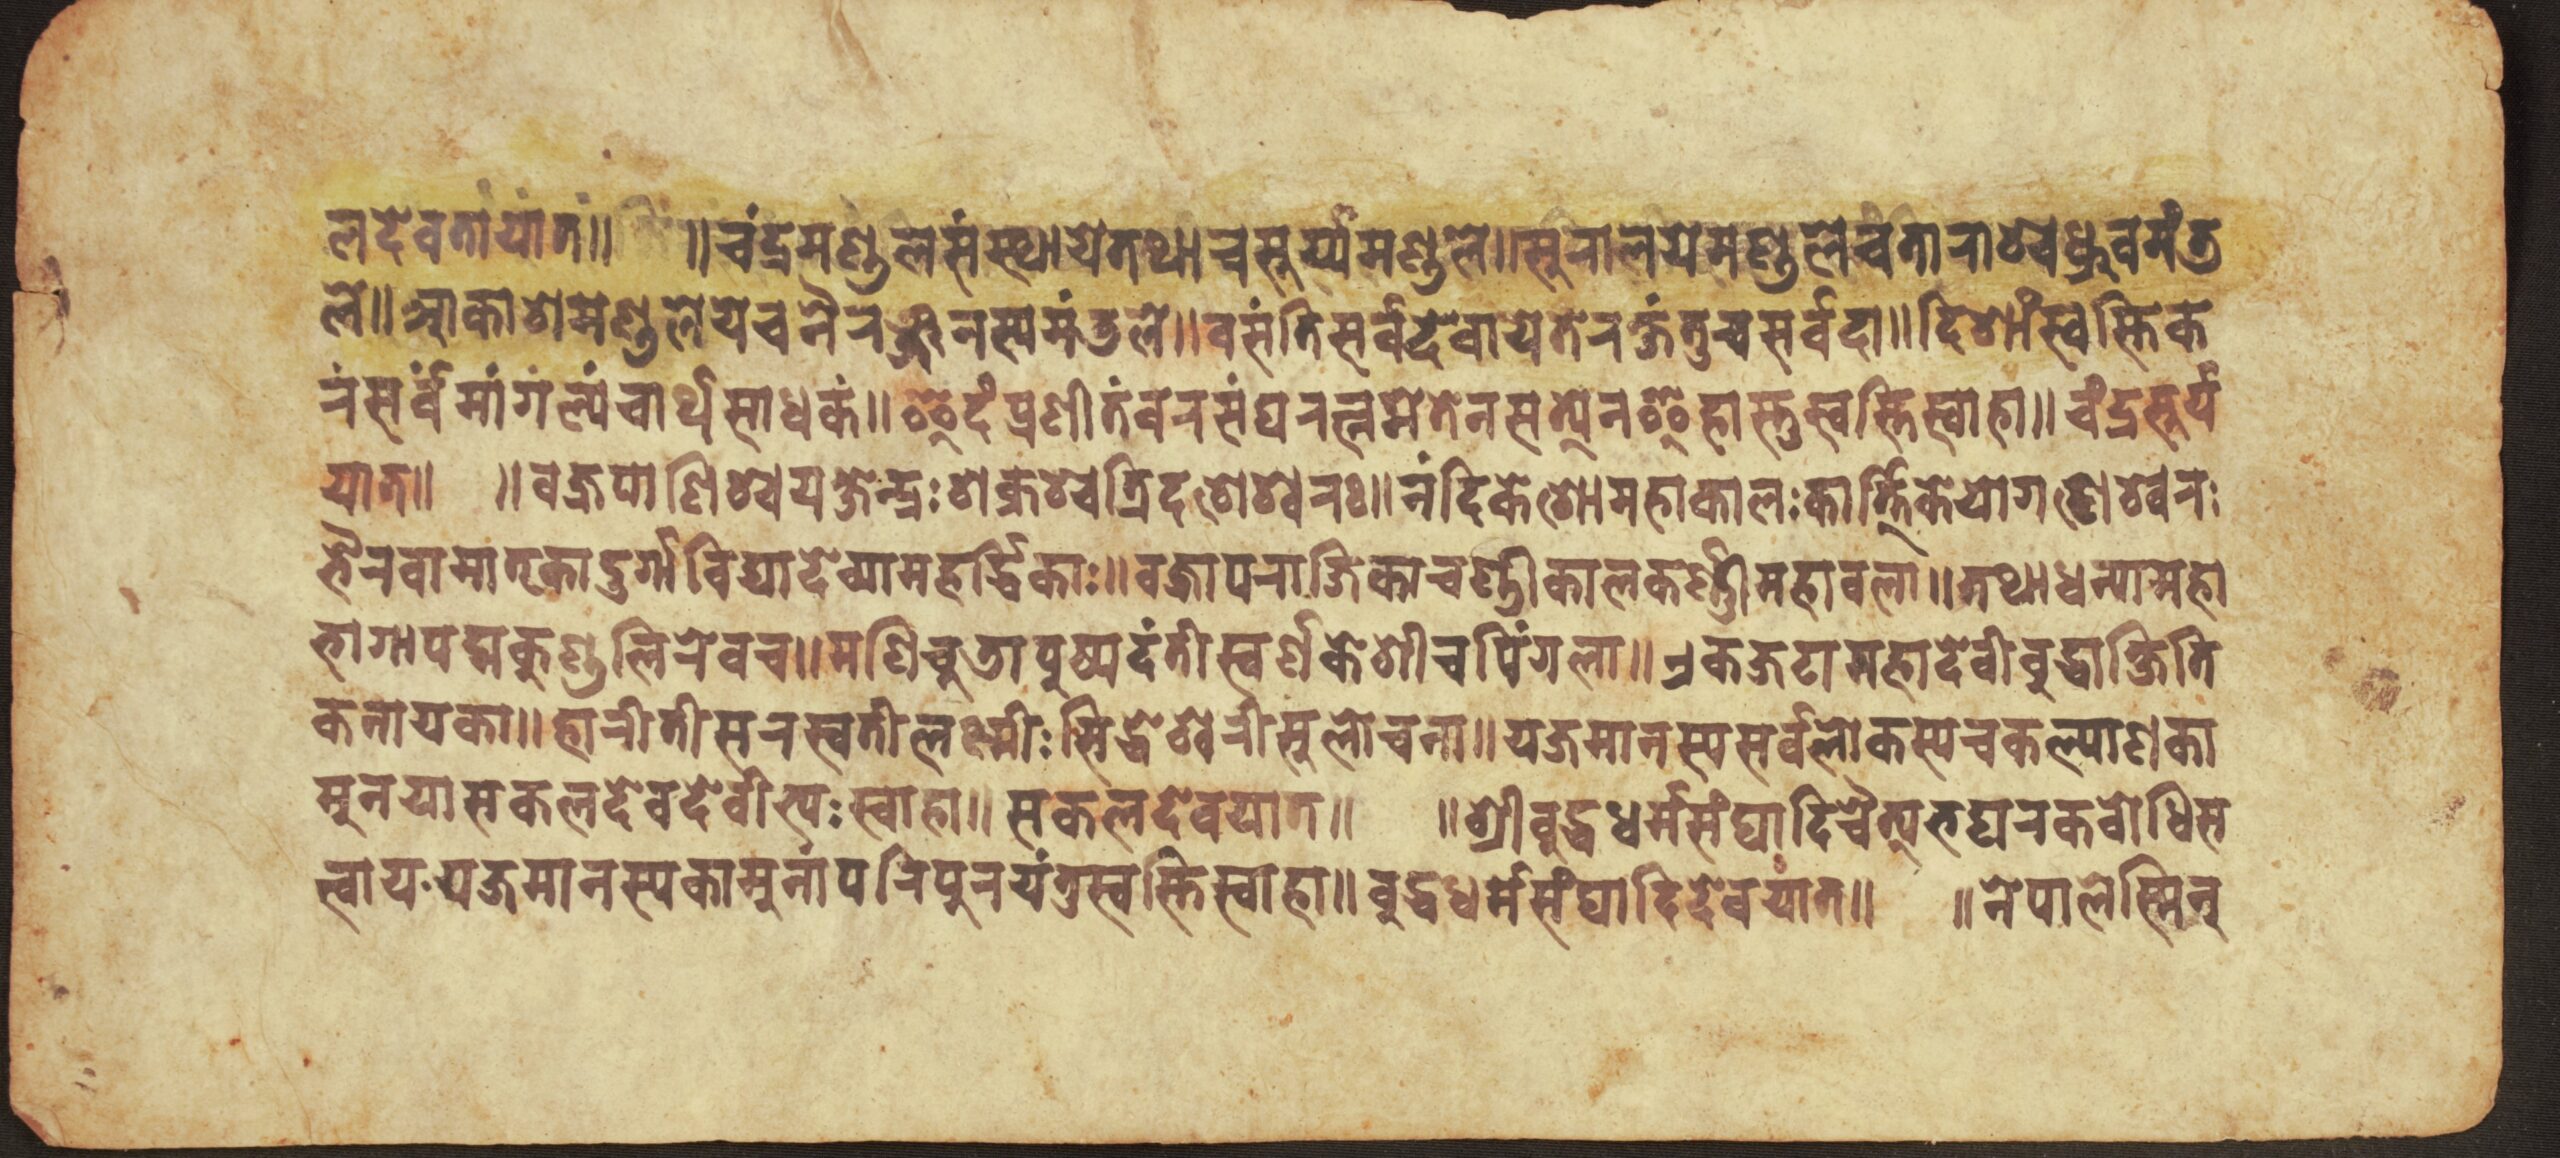 लदेवतांयांत॥ ॥चंद्रमण्डुलसंस्थायेतथाचसूर्य्यमण्डुले॥सूरालयेमण्डुलेचंताराश्चेध्रुवमंत
ले॥आकाशेमण्डुलेयेचनैरञ्जनस्यमंतले॥वसंतिसर्वदेवायेतेरक्षंतुचसर्वदा॥दिशांस्वस्तिक
रंसर्वमांगंल्यंचार्थसाधकं॥इदंप्रणीतंवरसंघरत्नमेतेनसत्येनइहास्तुस्वस्तिस्वाहा॥चंद्रसूर्य
यात॥ ॥वज्रपाणिश्चयक्षेन्द्रःशक्रश्चेत्रिदशेश्वेरः॥नंदिकेशोमहाकालःकार्त्तिकेयोगणेश्वेरः
भैरवामातृकादुर्गाविद्यादेव्यामहर्द्धिकाः॥वज्रापराजिकाचण्डीकालकर्ण्डीमहावला॥तथाधन्यामहा
भागापद्मकुण्डुलिरेवच॥मणिचुतापुष्पदंतीस्वर्णकेशीचपिंगला॥एकजटामहादेवीवुद्धाक्षिति
कनायका॥हारीतीसरस्वतीलक्ष्मीःसिद्धेश्वेरीसुलोचना॥यजमानस्यसर्वलोकस्यचकल्याणका
मुनयासकलदेवदेवीभ्यःस्वाहा॥सकलदेवयात॥ ॥श्रीवुद्धधर्मसंघादिचैत्यभद्यरकवोधिस
त्वाययजमानस्यकामुनांपरिपुरयंतुस्वस्तिस्वाहा॥वुद्धधर्मसंघादिदेवयांत॥ ॥नेपालेस्मिन्